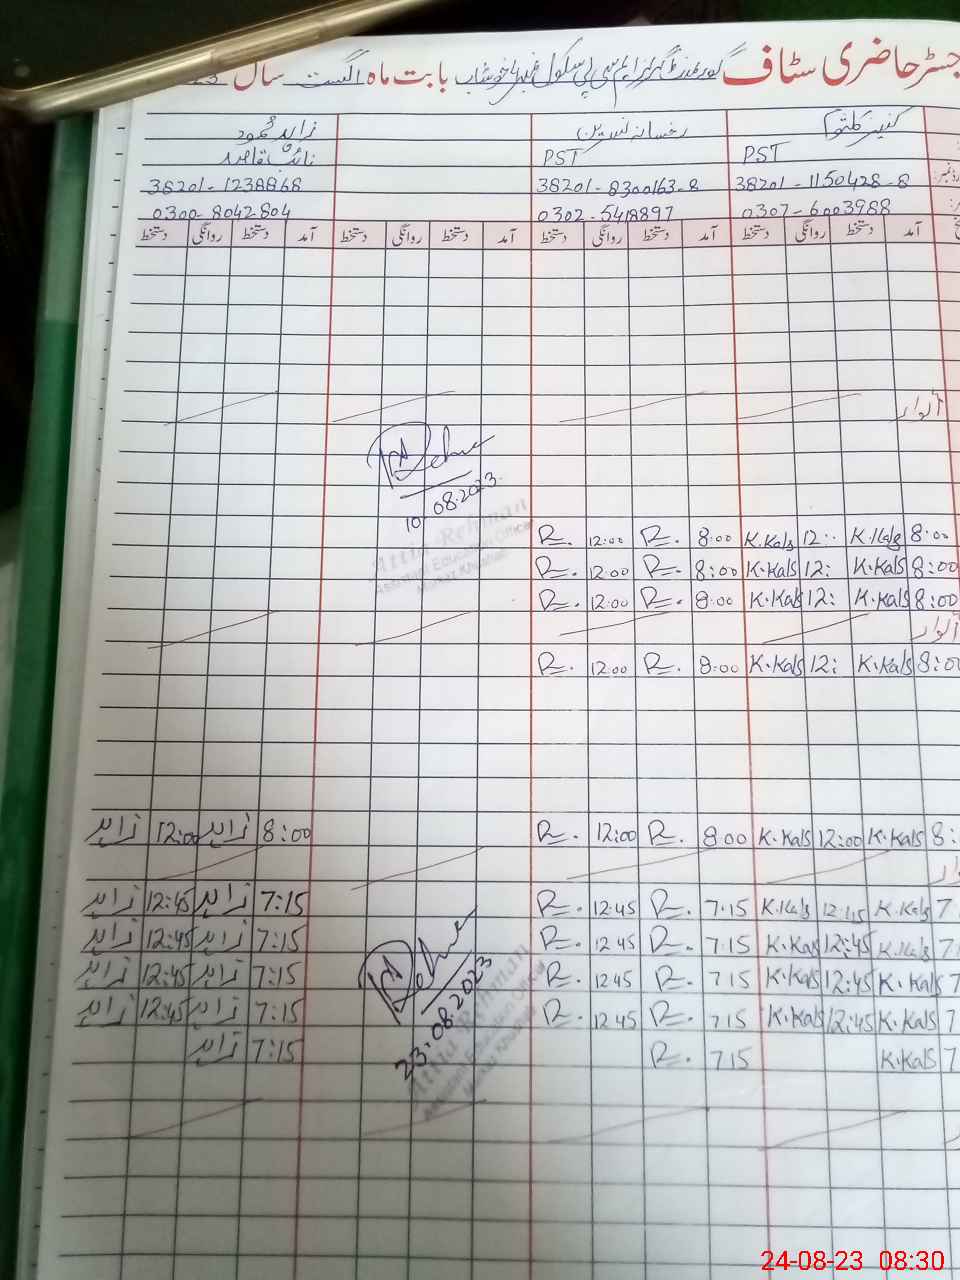 رجسٹر حاضری سٹاف گورنمنٹ گرلز ایم سی پی سکول خوشاب بابت ماہ اگست سال
کنیز کلثوم رخسانہ نسرین زاہد محمود
PST PST نائب قاصد
38201-1150428-8 38201-8300163-8 38201-1238868
0307-6003988 0302-5418897 0300-8042804
آمد دستخط روانگی دستخط آمد دستخط روانگی دستخط آمد دستخط روانگی دستخط آمد دستخط روانگی دستخط
اتوار
10.08.2023
Attia Rehman
Assistant Education Officer
Markaz Khushab
8:00 K.Kals 12:.. K.Kals 8:00 R. 12:00 R.
8:00 K.Kals 12: K.Kals 8:00 R. 12:00 R.
8:00 K.Kals 12: K.Kals 8:00 R. 12:00 R.
اتوار
8:00 K.Kals 12: K.Kals 8:00 R. 12:00 R.
8: K.Kals 12:00 K.Kals 8:00 R. 12:00 R. 8:00 زاہد 12:00 زاہد
7 K.Kals 12:45 K.Kals 7.15 R. 12.45 R. 7:15 زاہد 12:45 زاہد
7 K.Kals 12:45 K.Kals 7.15 R. 12.45 R. 7:15 زاہد 12:45 زاہد
7 K.Kals 12:45 K.Kals 7.15 R. 12.45 R. 7:15 زاہد 12:45 زاہد
7 K.Kals 12:45 K.Kals 7.15 R. 12.45 R. 7:15 زاہد 12:45 زاہد
7 K.Kals 7.15 R. 7:15 زاہد
23.08.2023
Attia Rehman
Assistant Education Officer
Markaz Khushab
24-08-23 08:30